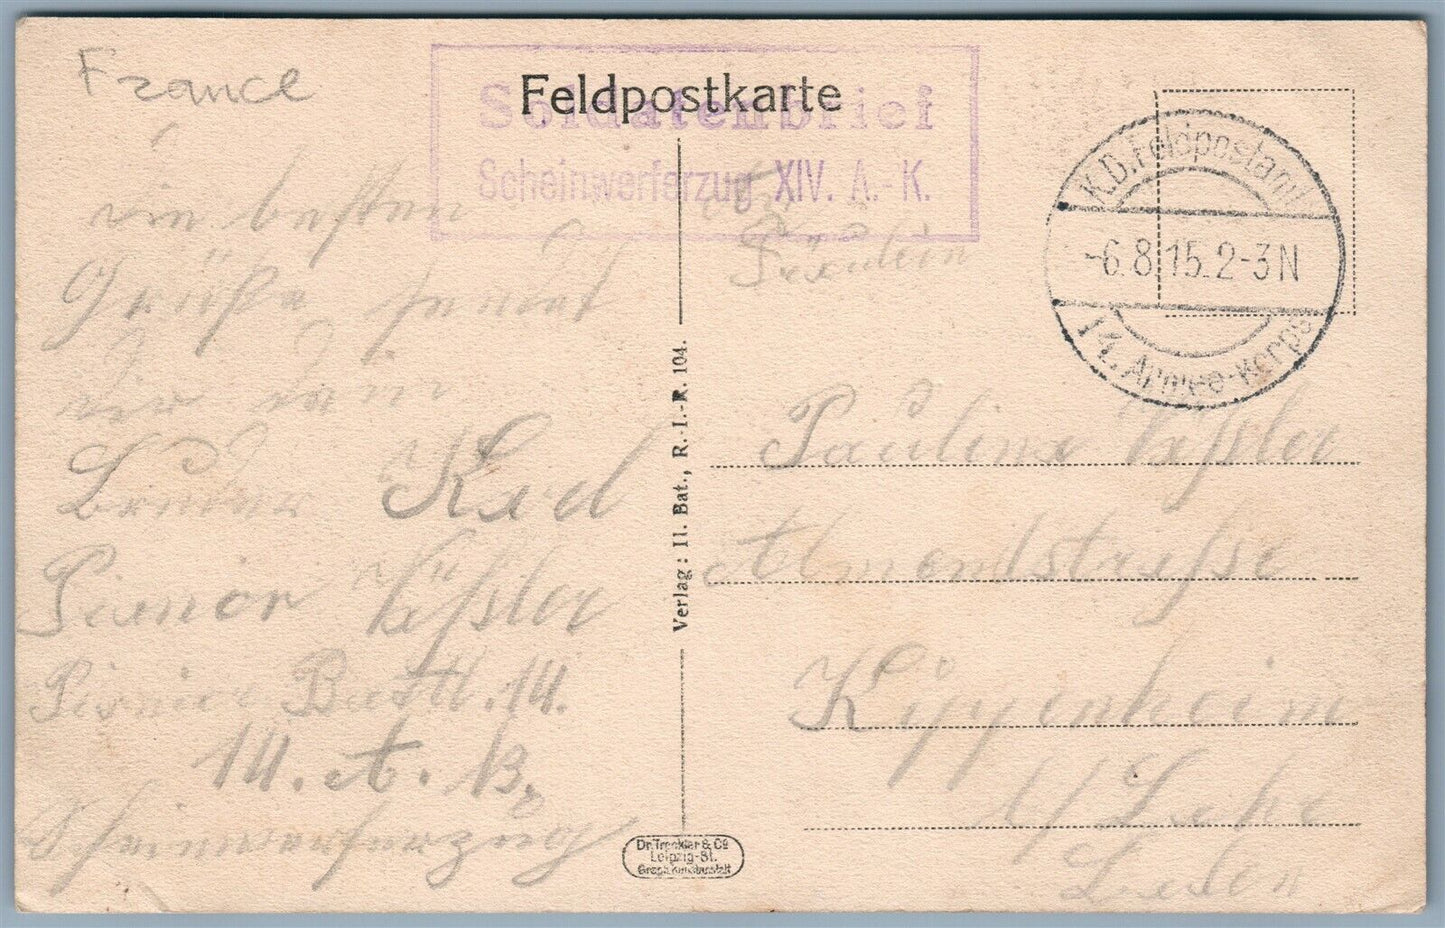 France
Feldpostkarte
Soldatenbrief
Scheinwerferzug XIV. A.-K.
K.D. Feldpostamt
-6.8.15. 2-3 N
14. Armee-Korps
Die besten
Grüße sendet
Dir dein
Bruder Karl
Pionier Keßler
Pionier Batl. 14.
14. A. K.
Scheinwerferzug
Verlag: II. Bat., R.-I.-R. 104.
Dr. Trenkler & Co
Leipzig-St.
Graph. Kunstanstalt
Fräulein
Pauline Keßler
Almendstrasse
Kippenheim
b/ Lahr
Baden